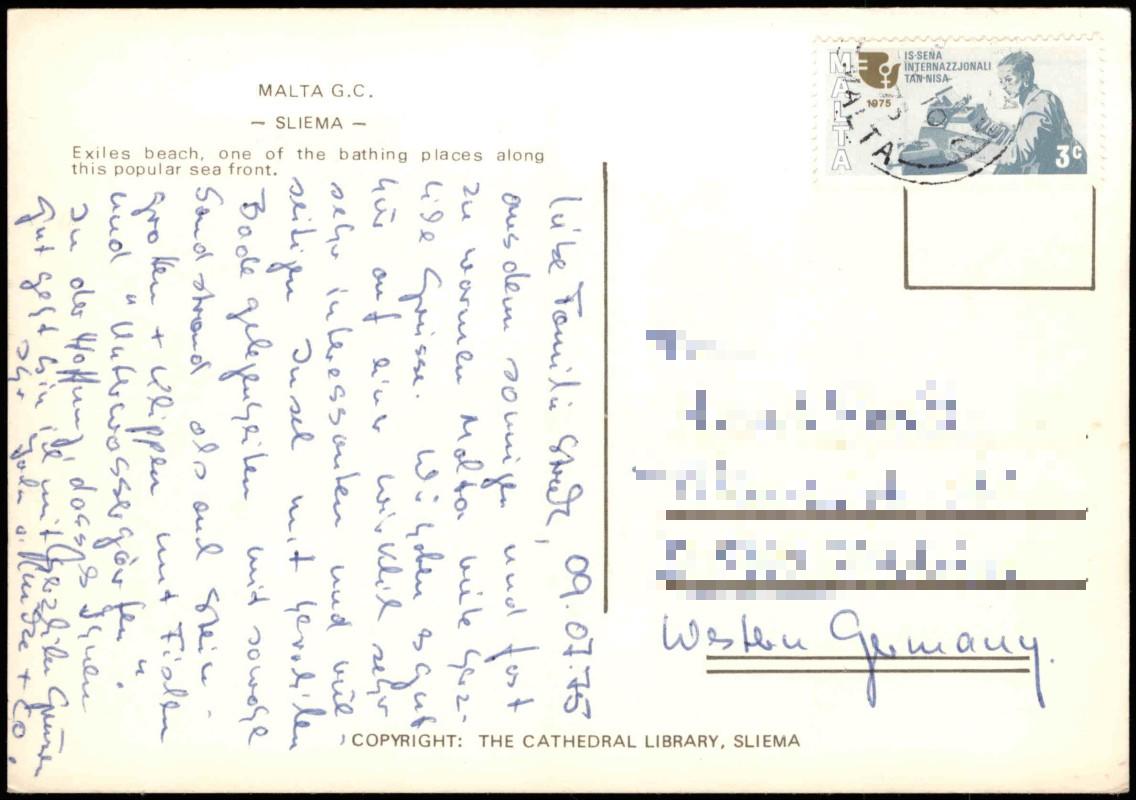 MALTA G.C.
— SLIEMA —
Exiles beach, one of the bathing places along
this popular sea front.
MALTA
1975
IS-SENA
INTERNAZZJONALI
TAN-NISA
3c
MALTA
Liebe Familie 09.07.75
aus dem sonnigen und fast
zu warmen Malta viele herz-
liche Grüsse. Wir haben es gut
hier auf einer wirklich sehr
sehr interessanten und viel-
seitigen Insel mit herrlichen
Badegelegenheiten mit sowohl
Sandstrand als auch Stein-
grotten + Klippen mit Fischen
und "Unterwassergärten".
In der Hoffnung, dass es Ihnen
gut geht bin ich mit herzlichen Grüssen
Ihr + Co.
Western Germany.
COPYRIGHT: THE CATHEDRAL LIBRARY, SLIEMA